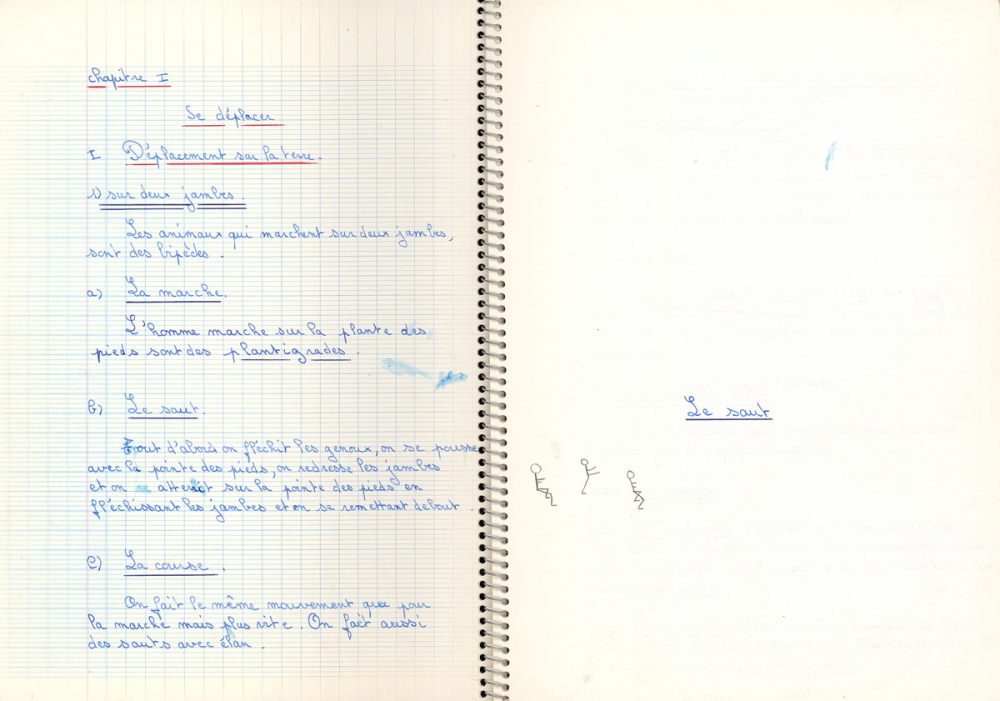 chapitre I
Se déplacer
I Déplacement sur la terre.
1) sur deux jambes.
Les animaux qui marchent sur deux jambes,
sont des bipèdes.
a) La marche.
L'homme marche sur la plante des
pieds sont des plantigrades.
b) Le saut.
Tout d'abord on fléchit les genoux, on se pousse
avec la pointe des pieds, on redresse les jambes
et on atterit sur la pointe des pieds en
fléchissant les jambes et on se remettant debout.
c) La course.
On fait le même mouvement que pour
la marche mais plus vite. On fait aussi
des sauts avec élan.
Le saut